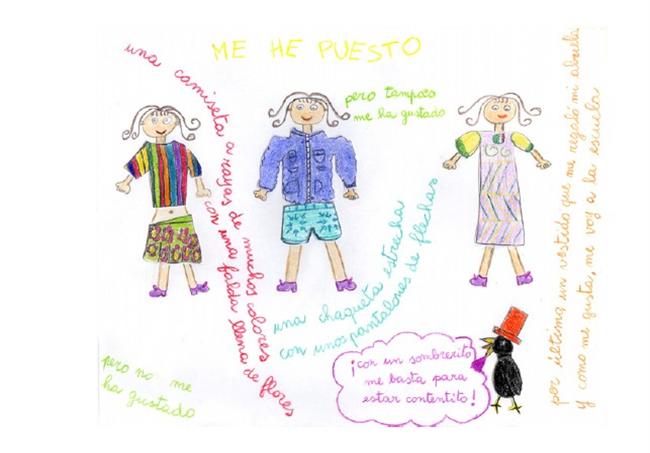 ME HE PUESTO
una camiseta a rayas de muchos colores
con una falda llena de flores
pero no me
ha gustado
una chaqueta estrecha
con unos pantalones de flechas
pero tampoco
me ha gustado
por último un vestido que me regaló mi abuela
y como me gusta, me voy a la escuela
¡con un sombrerito
me basta para
estar contentito!